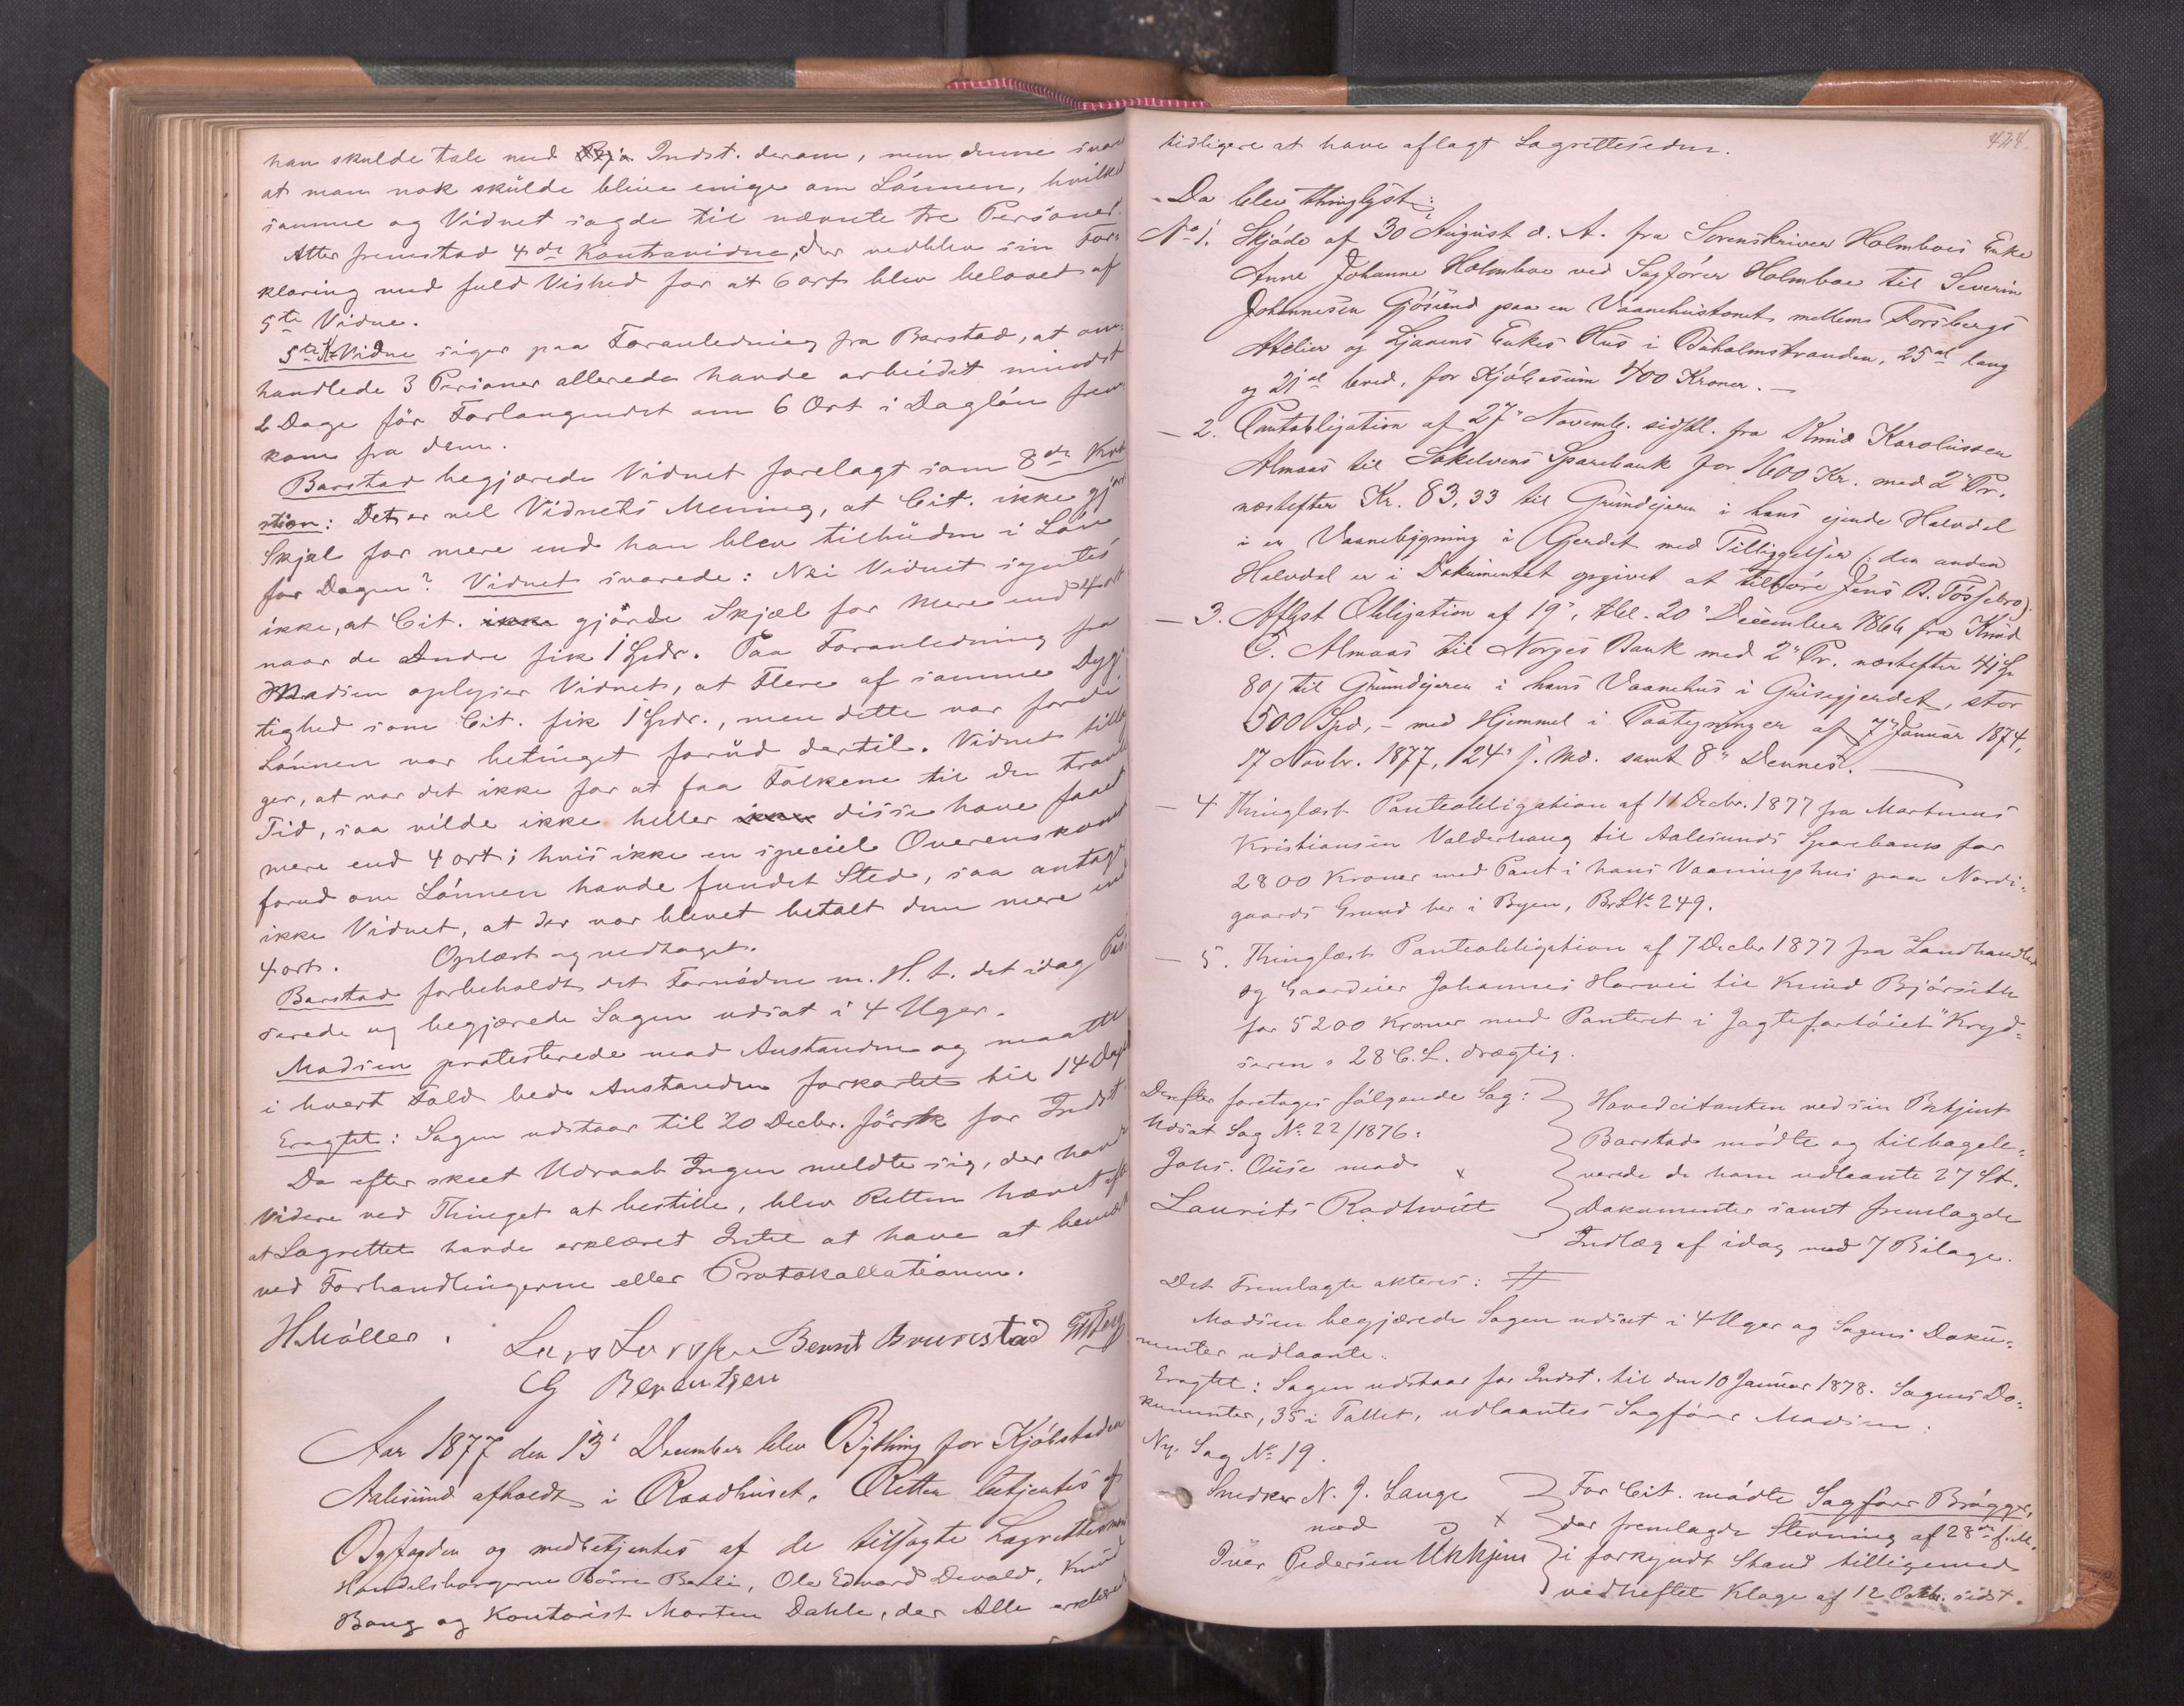 han skulde tale med Indst. derom, men denne svar
at man nok skulde blive enige om Lönnen, hvilket
samme og Vidnet sagde til nævnte tre Personer.
Atter fremstod 4de Kontravidne, der vedblev sin For=
klaring med fuld Vished for at 6 ort blev belovet af
5te Vidne.
5te K.Vidne siger paa Foranledning fra Barstad, at om=
handlede 3 Personer allerede havde arbeidet mindst
2 Dage för Forlangendet om 6 Ort i Daglön frem=
kom fra dem.
Barstad begjærede Vidnet forelagt som 8de Kve
stion: Det er vel Vidnets Mening, at Cit. ikke gjør
Skjæl for mere end han blev tilbuden i Lön
for Dagen? Vidnet svarede: Nei Vidnet syntes
ikke, at Cit. ikke gjörde Skjæl for Mere end 4 ort
naar de Andre fik 1 Spdr. Paa Foranledning fra
Madsen oplyser Vidnet, at Flere af samme Dyg=
tighed som Cit. fik 1 Spdr., men dette var fordi
Lönnen var betinget forud dertil. Vidnet tillæ
ger, at var det ikke for at faa Folkene til den travle
Tid, saa vilde ikke heller ikke disse have faaet
mere end 4 ort; hvis ikke en speciel Overenskomst
forud om Lönnen havde fundet Sted, saa antager
ikke Vidnet, at der var blevet betalt dem mere end
4 ort. Oplæst og vedtaget.
Barstad forbeholdt det Fornödne m. H. t. det idag Pas
serede og begjærede Sagen udsat i 4 Uger.
Madsen protesterede mod Anstanden og maatte
i hvert Fald bede Anstanden forkortet til 14 Dage
Eragtet: Sagen udstaar til 20 Decbr. först for Indst.
Da efter skeet Udraab Ingen meldte sig, der havde
videre ved Thinget at bestille, blev Retten hævet efter
at Lagrettet havde erklæret Intet at have at bemærke
ved Forhandlingerne eller Protokollationen.
H. Möller. Lars Larssen Bernt Brunstad
G Berentsen
Aar 1877 den 13de December blev Bything for Kjöbstaden
Aalesund afholdt i Raadhuset. Retten betjentes af
Byfogden og medbetjentes af de tilsagte Lagrettesmænd
Handelsborgerne Börre Bakli, Ole Edvard Devold, Knud
Bang og Kontorist Morten Dahle, der Alle erklærede
424.
tidligere at have aflagt Lagretteseden.
Da blev thinglyst:
No 1. Skjöde af 30 August d. A. fra Sorenskriver Holmboes Enke
Anne Johanne Holmboe ved Sagförer Holmboe til Severin
Johannesen Gjösund paa en Vaanehustomt mellem Forsbergs
Atelier og Ljaaens Enkes Hus i Buholmstranden, 25 al. lang
og 21 al. bred, for Kjöbesum 400 Kroner. –
– 2. Pantobligation af 27" Novembr. sidstl. fra Knud Karolussen
Almaas til Sökelvens Sparebank for 1600 Kr. med 2" Pr.
næstefter Kr. 83,33 til Grundejeren i hans ejende Halvdel
i en Vaanebygning i Gjerdet med Tilliggelser (: den anden
Halvdel er i Dokumentet opgivet at tilhöre Jens B. Fossebro).
– 3. Aflyst Obligation af 19", tbl. 20" December 1866 fra Knud
C. Almaas til Norges Bank med 2" Pr. næstefter
80 / til Grundejeren i hans Vaanehus i Grisegjerdet, stor
500 Spd, – med Hjemmel i Paategninger af 7" Januar 1874,
17 Novbr. 1877, 124" f. Md. samt 8" Dennes. –
– 4 Thinglæst Panteobligation af 11 Decbr. 1877 fra Martinus
Kristiansen Valderhaug til Aalesunds Sparebank for
2800 Kroner med Pant i hans Vaaningshus paa Nordi=
gaards Grund her i Byen, Br.L.No 249.
– 5. Thinglæst Panteobligation af 7 Decbr 1877 fra Landhandler
og Gaardeier Johannes Harvei til Knud Björseth
for 5200 Kroner med Panteret i Jagtefartöiet "Kryd=
seren" 28 C.L. drægtig.
Derefter foretages fölgende Sag:
Udsat Sag No 22/1876:
Johs. Ouse mod x
Laurits Rodtwitt
Hovedcitanten ved sin Betjent
Barstad mödte og tilbagele=
verede de ham udlaante 27 St.
Dokumenter samt fremlagde
Indlæg af idag med 7 Bilage.
Det Fremlagte akteres: #
Madsen begjærede Sagen udsat i 4 Uger og Sagens Doku=
menter udlaante.
Eragtet: Sagen udstaar for Indst. til den 10 Januar 1878. Sagens Do=
kumenter, 35 i Tallet, udlaantes Sagförer Madsen.
Ny Sag No 19.
Snedker N. J. Lange
mod x
Iver Pedersen Ukkjem
For Cit. mödte Sagförer Brögger,
der fremlagde Stevning af 28de f. M.
i forkyndt Stand tilligemed
vedheftet Klage af 12 Oktbr. sidst.